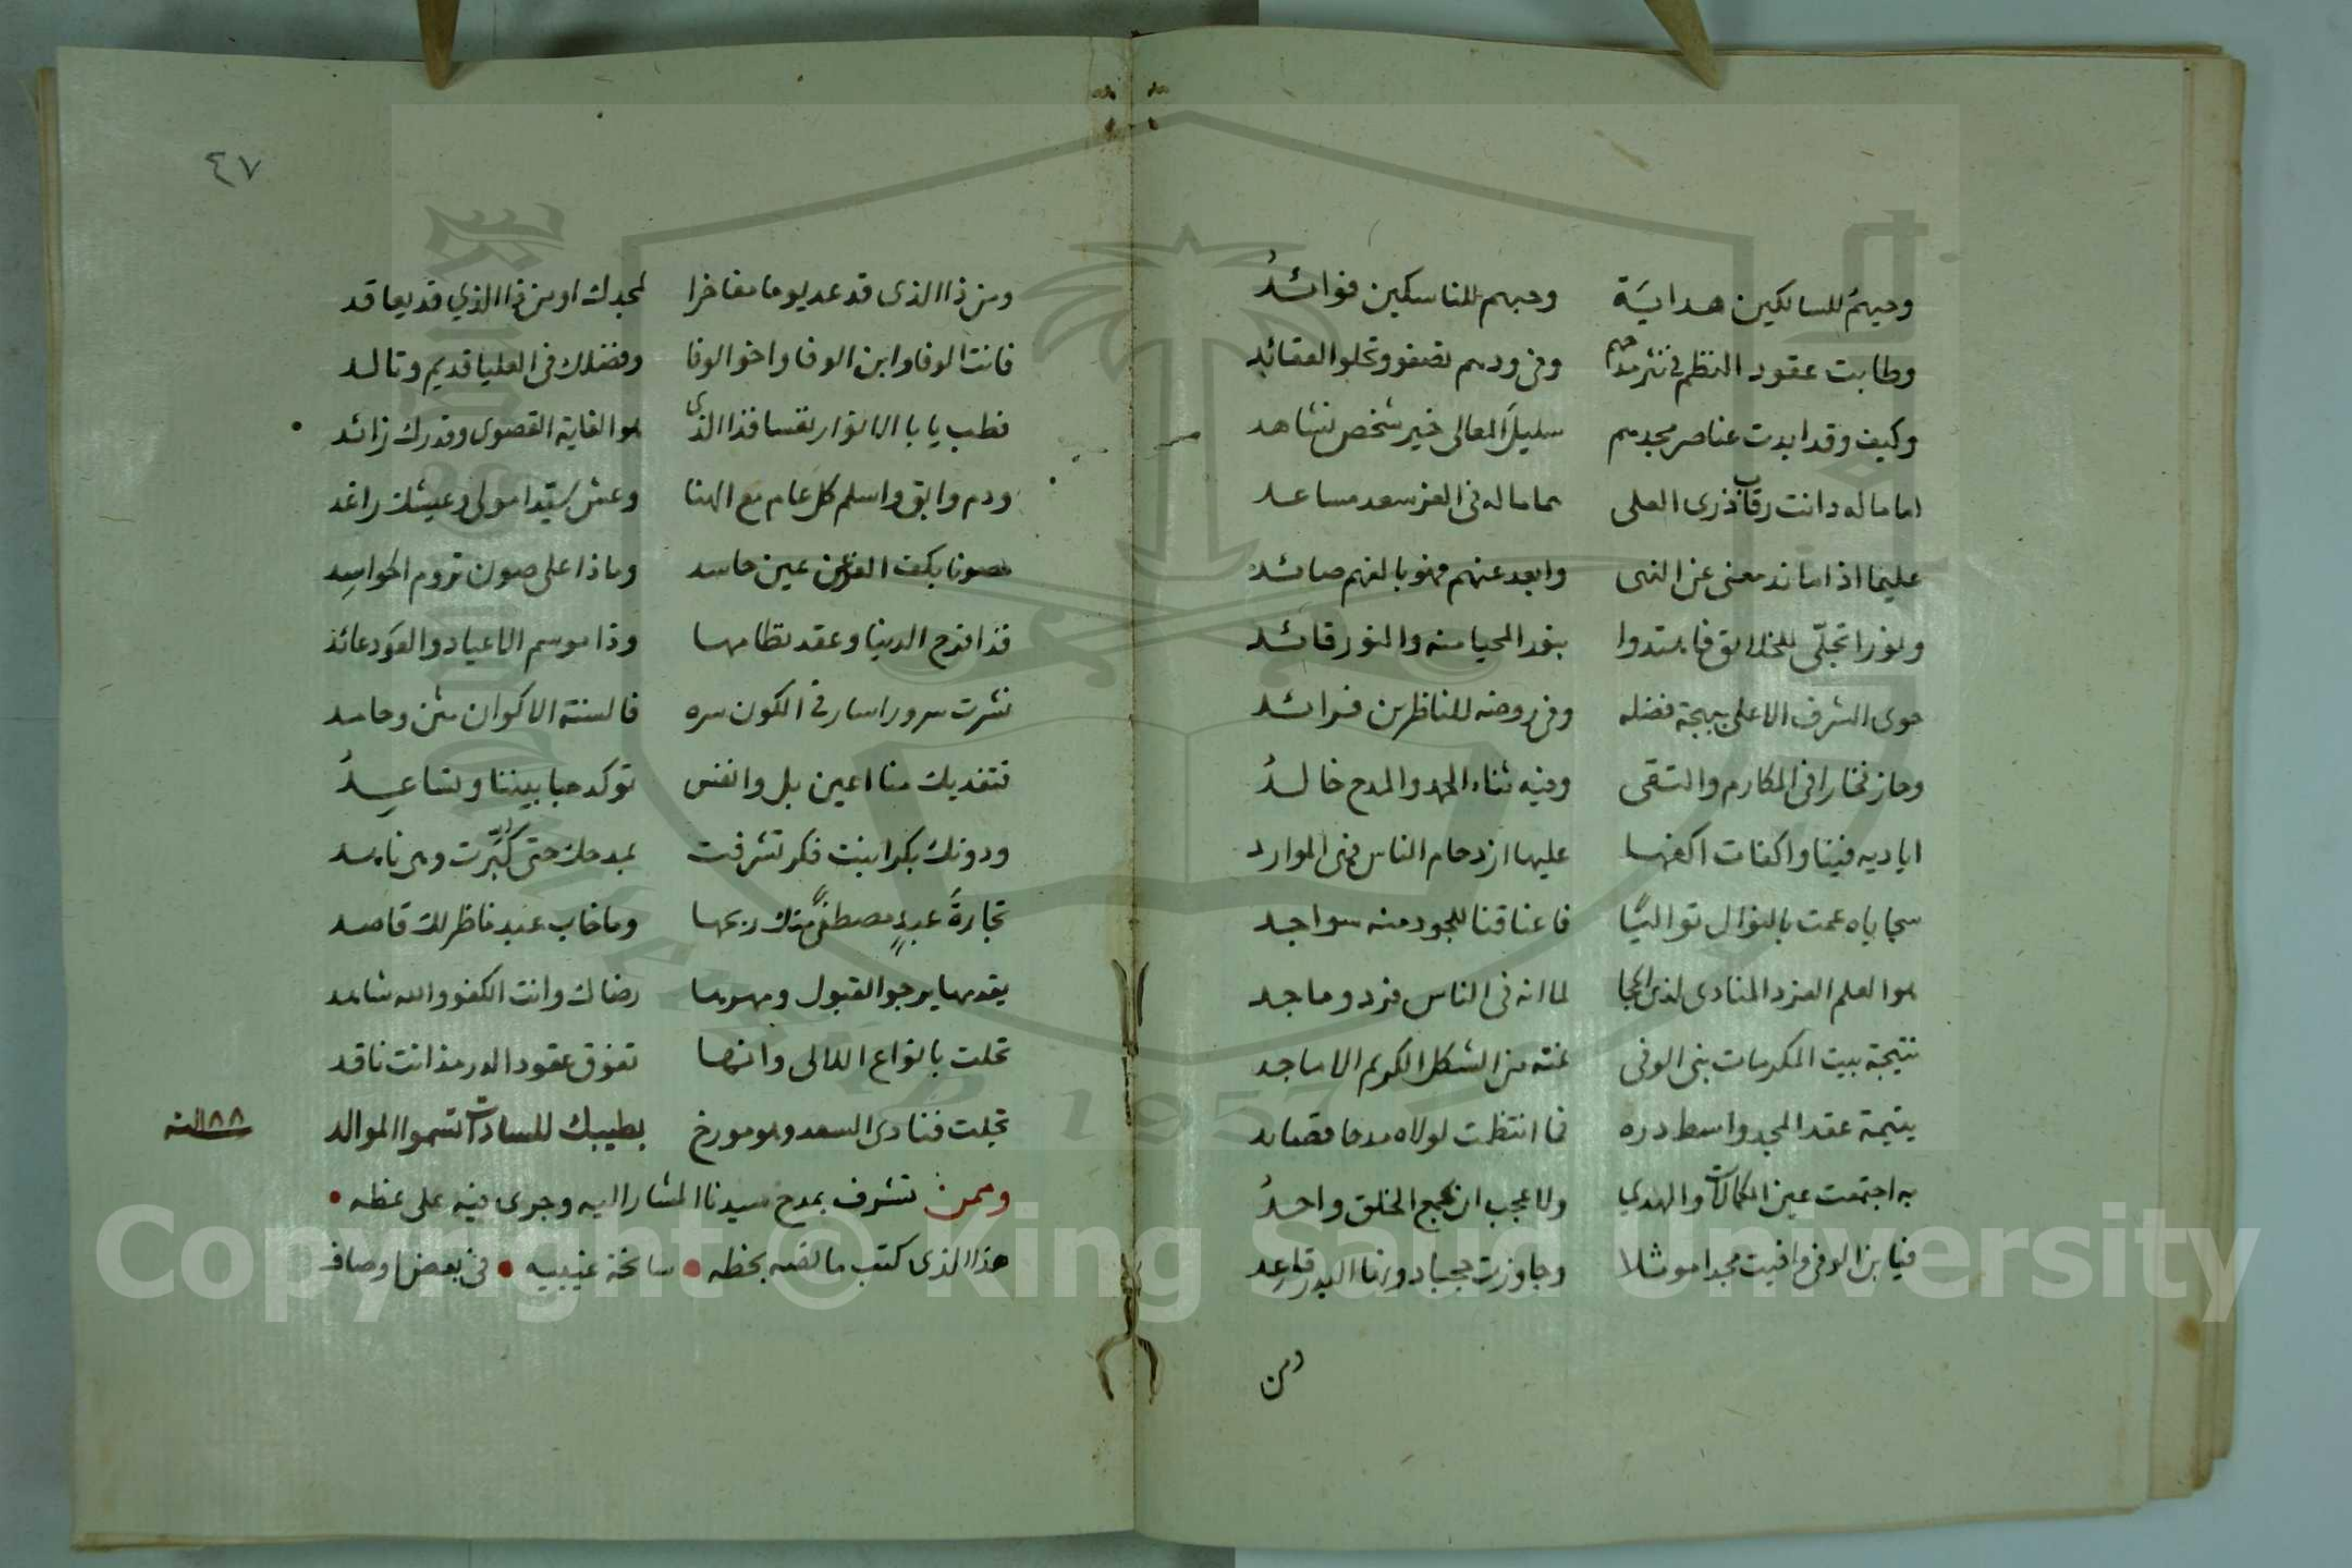 وحبهم للسالكين هداية وحبهم للناسكين فوائد
وطابت عقود النظم في نثر مدحهم وفي ودهم تصفو وتحلو العقائد
وكيف وقد ابدت عناصر مجدهم سليل المعالي خير شخص نشاهد
اماما له دانت رقاب ذرى العلى هماما له في العز سعد مساعد
عليما اذا ما ند معنى عن النهى وابعد عنهم فهو بالفهم صائد
ونورا تجلى للخلائق فاهتدوا بنور المحيا منه والنور قائد
حوى الشرف الاعلى ببهجة فضله وفي روضه للناظرين فرائد
وحاز فخارا في المكارم والتقى وفيه ثناء الحمد والمدح خالد
اياديه فينا واكفات اكفها عليها ازدحام الناس فهي الموارد
سجاياه عمت بالنوال تواليا فاعناقنا للجود منه سواجد
هو العلم الفرد المنادى لذي الحجا لما انه في الناس فرد وماجد
نتيجة بيت المكرمات بني الوفى نمته من الشكل الكريم الاماجد
يتيمة عقد المجد واسط دره فما انتظمت لولاه مدحا قصائد
به اجتمعت عين الكمالات والهدي ولا عجب ان يجمع الخلق واحد
فيا بن الوفى وافيت مجدا موثلا وجاوزت
ومن
٤٧
ومن ذا الذى قد عد يوما مفاخرا لمجدك او من ذا الذي قد يعاقد
فانت الوفا وابن الوفا واخو الوفا وفضلك في العليا قديم وتالد
فطب يا با الانوار نفسا فذا الذى هو الغاية القصوى وقدرك زائد
ودم وابق واسلم كل عام مع الهنا وعش سيدا مولى وعيشك راغد
مصونا بكف العز من عين حاسد وماذا على صون تروم الحواسد
فذا فرح الدنيا وعقد نظامها وذا موسم الاعياد والعود عائد
نشرت سرورا سار في الكون سره فالسنة الاكوان مثن وحامد
فتفديك منا اعين بل وانفس توكد حبا بيننا وتساعد
ودونك بكرا بنت فكر تشرفت بمدحك حتى كبرت وهي ناهد
تجارة عبد مصطفى منك ربحها وما خاب عبد ناظر لك قاصد
يقدمها يرجو القبول ومهرها رضاك وانت الكفو والله شاهد
تحلت بانواع اللالى وانها تفوق عقود الدر مذ انت ناقد
تجلت فنادى السعد وهو مورخ بطيبك للسادات تسموا الموالد ١١٨٨ سنة
وممن تشرف بمدح سيدنا المشار اليه وجرى فيه على نمطه •
هذا الذى كتب ما لفه بخطه • سانحة غيبيه • في بعض اوصاف
Copyright © King Saud University
1957